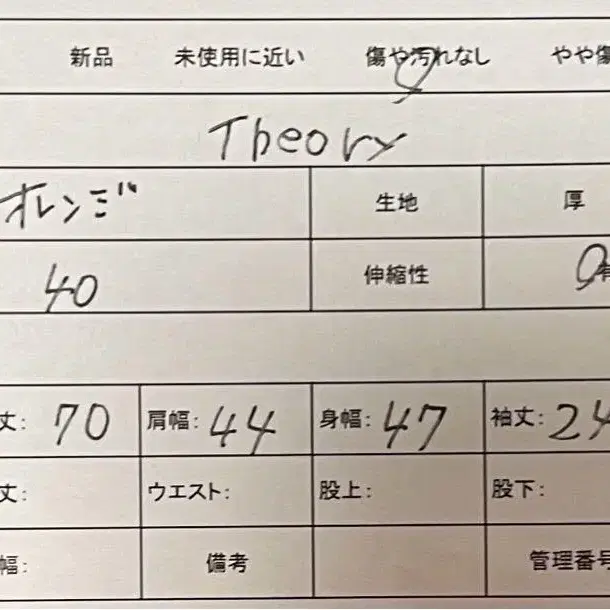 新品 未使用に近い 傷や汚れなし やや傷
Theory
オレンジ 生地 厚
40 伸縮性 有
丈: 70 肩幅: 44 身幅: 47 袖丈: 24
丈: ウエスト: 股上: 股下:
幅: 備考 管理番号